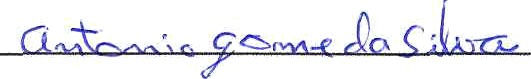 antonio gome da silva